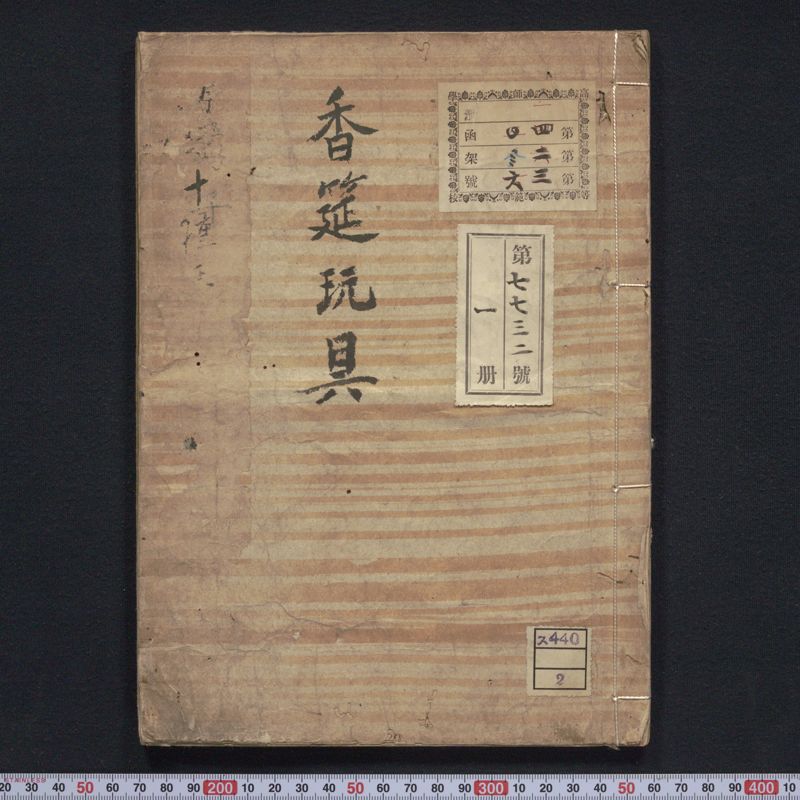 香筵玩具
高等師範學校
第四
第二
第三
函
架
號
六
第七七三二號
一册
ス440
2
十種
STAINLESS
20 30 40 50 60 70 80 90 200 10 20 30 40 50 60 70 80 90 300 10 20 30 40 50 60 70 80 90 400 10